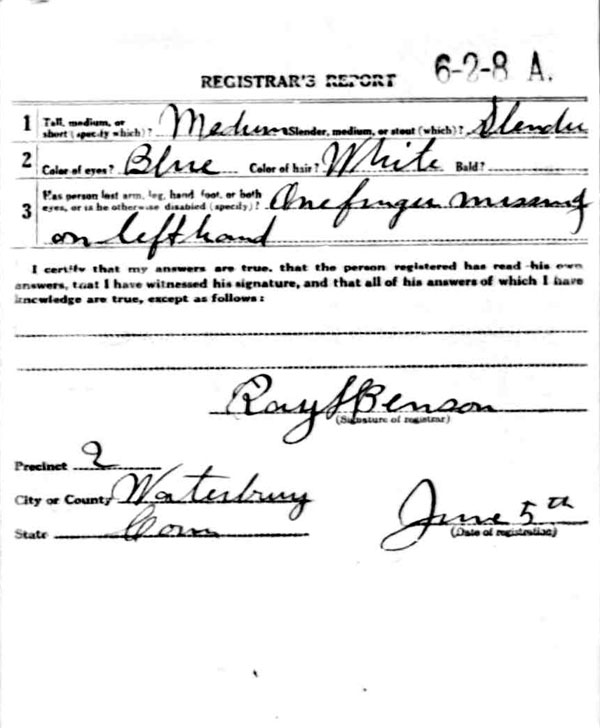 REGISTRAR'S REPORT 6-2-8 A.
1 Tall, medium, or short (specify which)? Medium Slender, medium, or stout (which)? Slender
2 Color of eyes? Blue Color of hair? White Bald?
3 Has person lost arm, leg, hand, foot, or both eyes, or is he otherwise disabled (specify)? One finger missing
on left hand
I certify that my answers are true, that the person registered has read his own
answers, that I have witnessed his signature, and that all of his answers of which I have
knowledge are true, except as follows:
Ray S Benson
(Signature of registrar)
Precinct 2
City or County Waterbury
State Conn
June 5th
(Date of registration)